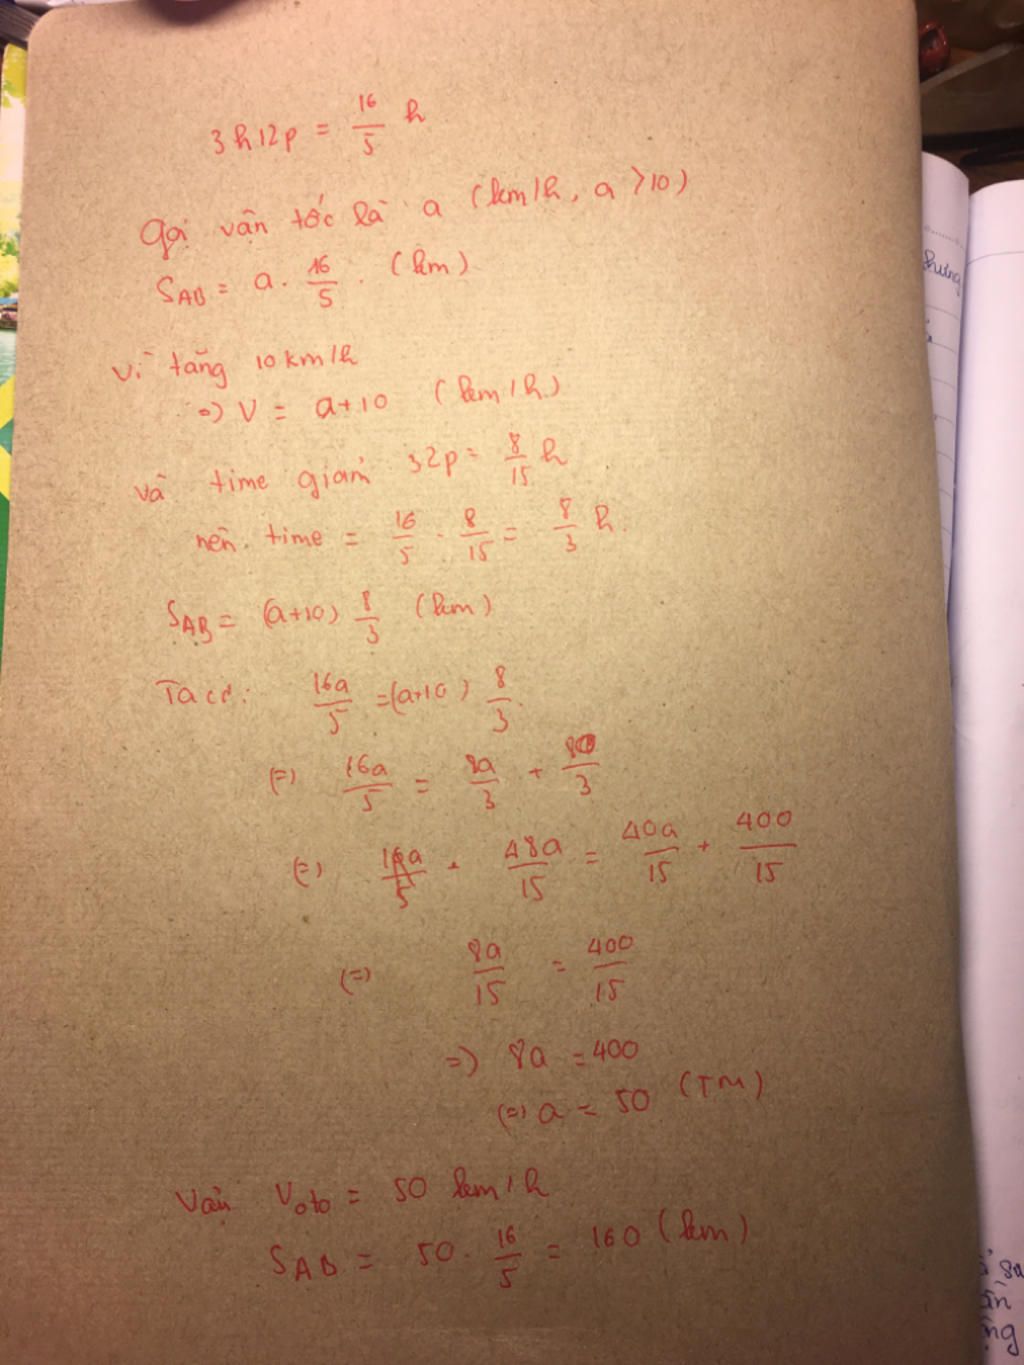 3h12p = 16/5 h
Gọi vận tốc là a (km/h, a > 10)
S_AB = a . 16/5 . (km)
Vì tăng 10 km/h
=> V = a+10 (km/h)
và time giảm 32p = 8/15 h
nên time = 16/5 - 8/15 = 8/3 h.
S_AB = (a+10) 8/3 (km)
Ta có: 16a/5 = (a+10) 8/3.
(=) 16a/5 = 8a/3 + 80/3
(=) 48a/15 = 40a/15 + 400/15
(=) 8a/15 = 400/15
=> 8a = 400
(=) a = 50 (TM)
Vậy V_oto = 50 km/h
S_AB = 50 . 16/5 = 160 (km)